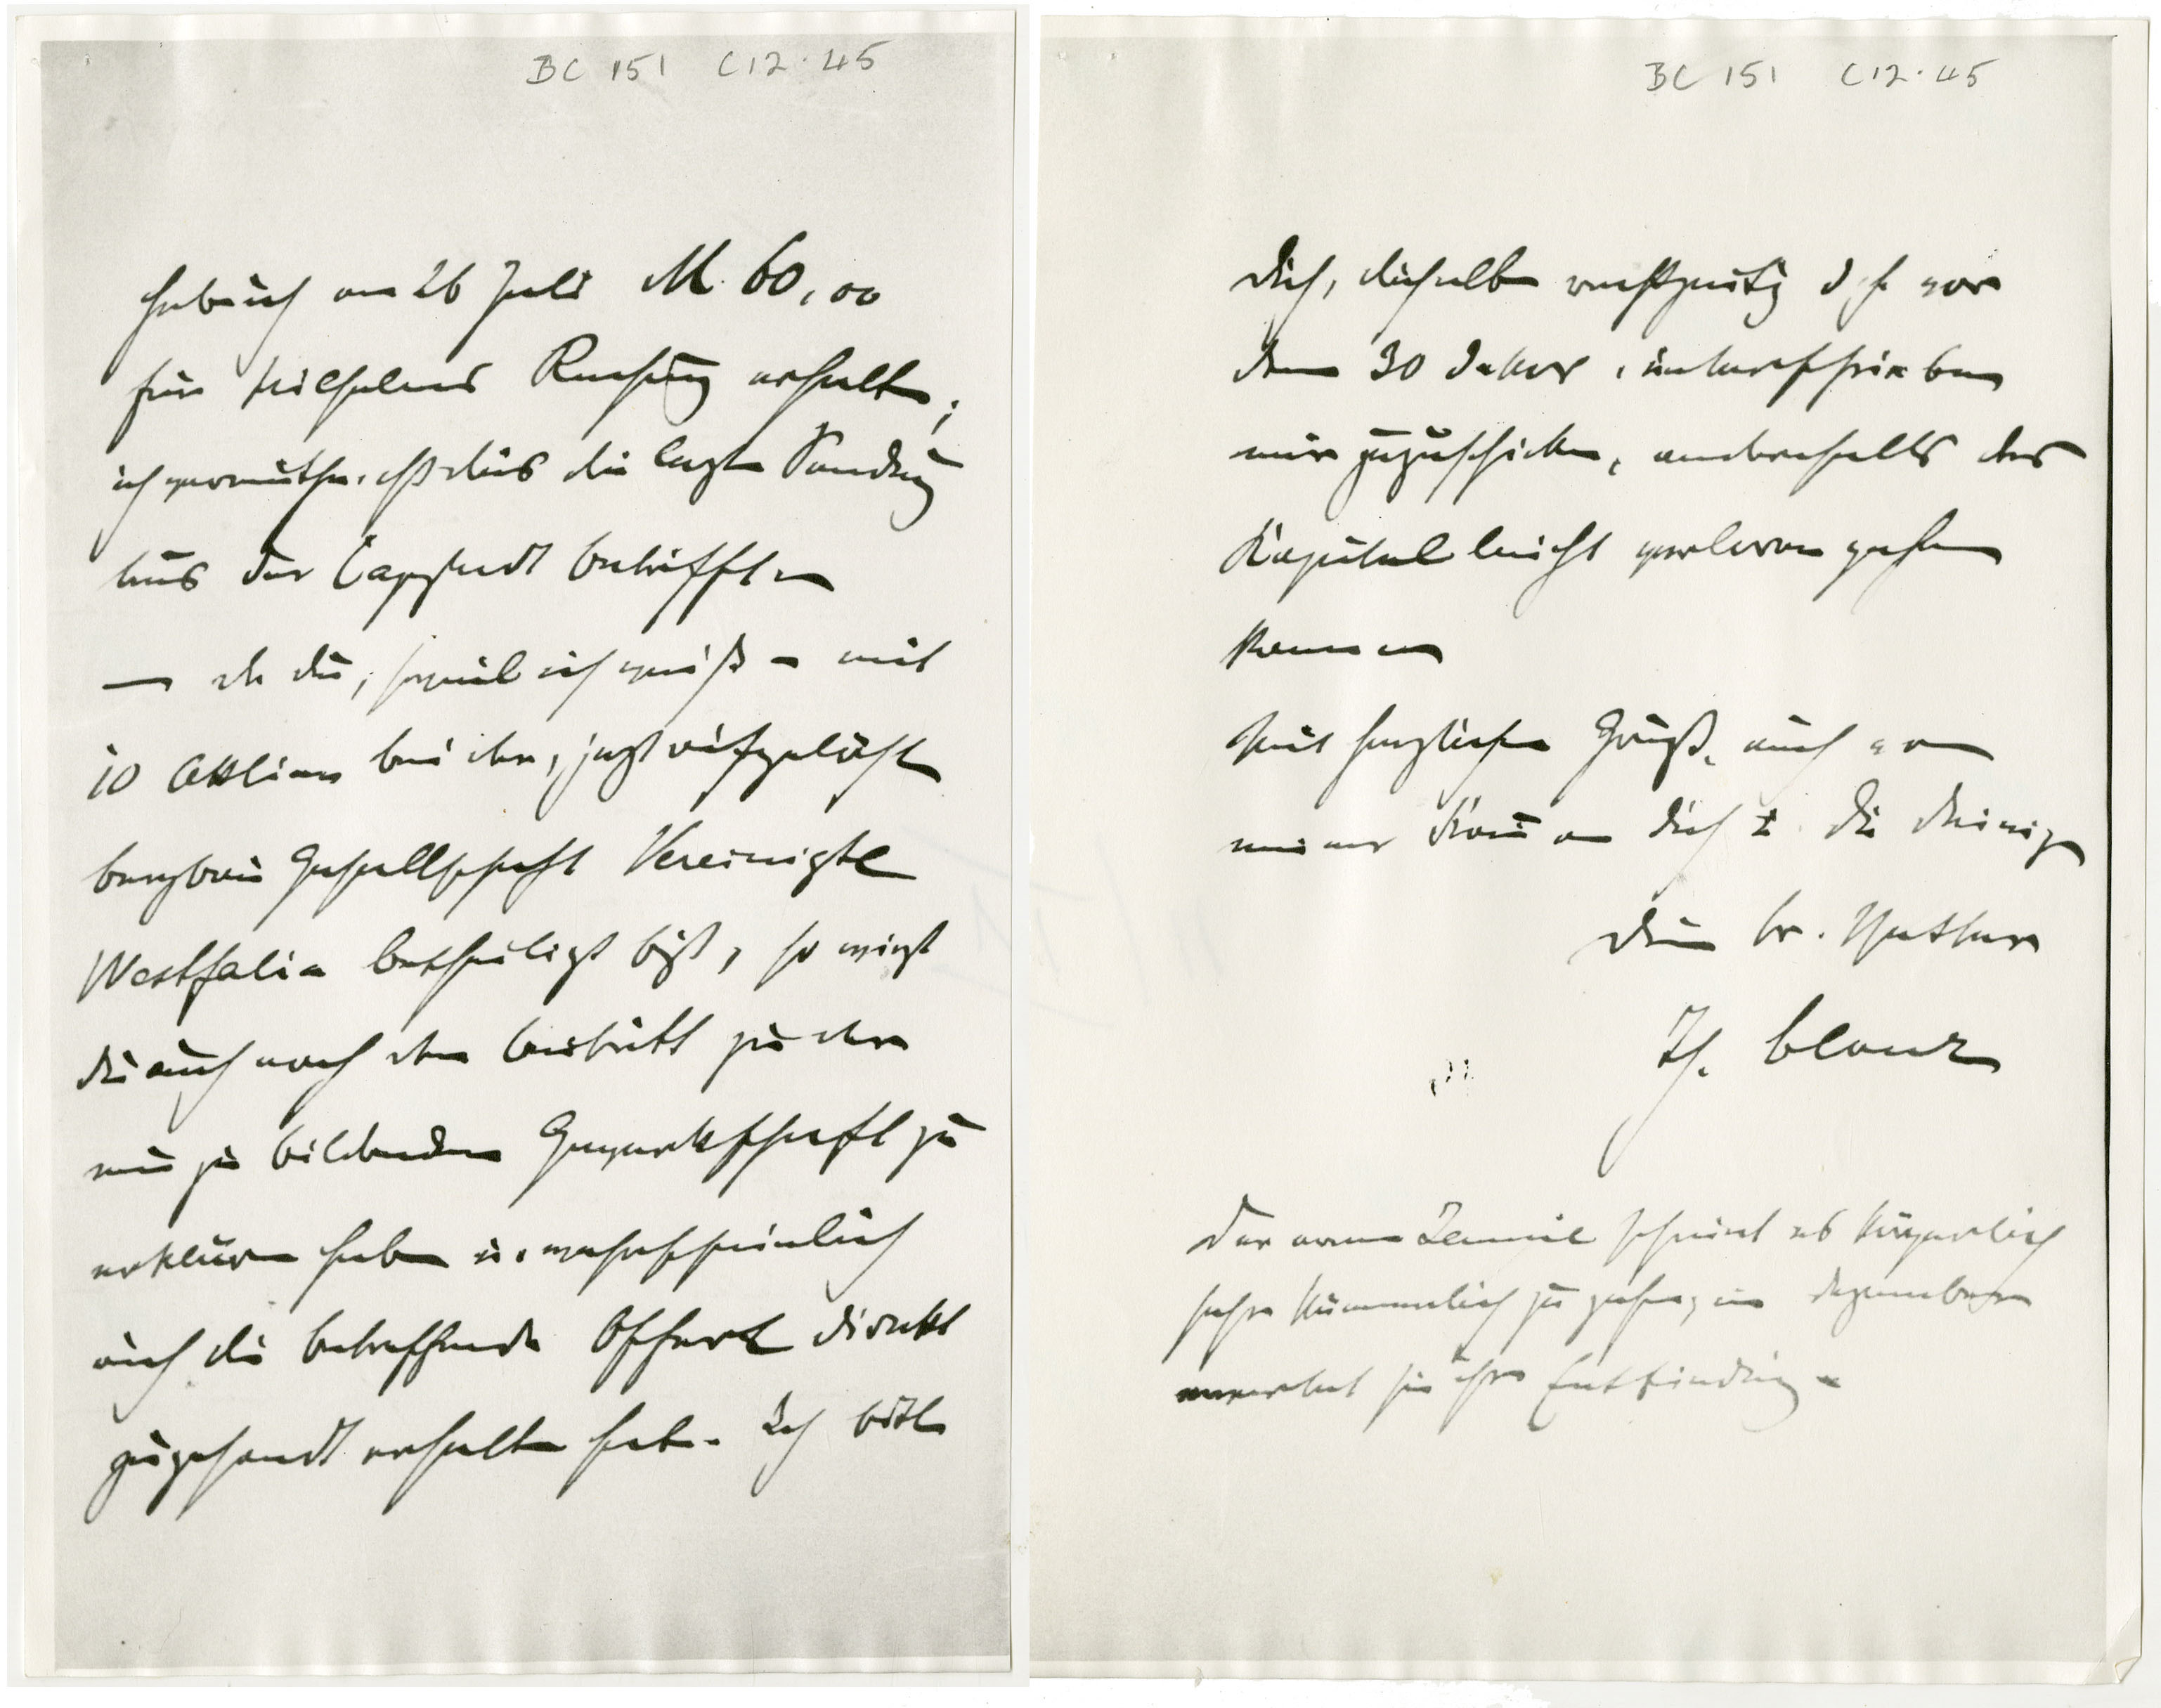 BC 151 C12.45
habe ich am 26 Juli M. 60,00
für Wilhelms Rechnung erhalten,
ich vermuthe, daß dies die letzte Sendung
aus der Capstadt betrifft
— da du, soviel ich weiß – mit
10 Aktien bei der, jetzt aufgelöst
bergbau Gesellschaft Vereinigte
Westfalia betheiligt bist, so wirst
du auch noch den beitritt zu der
neu zu bildenden Gewerkschaft zu
erklären haben u. wahrscheinlich
auch die betreffende Offerte direkt
zugesandt erhalten hab. Ich bitte
BC 151 C12.45
dich, dieselbe rechtzeitig d. h. vor
dem 30 October, unterschrieben
mir zuzuschicken, anderenfalls das
Kapital leicht verloren gehen
kann
Mit herzlichen Gruß, auch von
meiner Frau an dich u. die deinigen
dein tr. Vetter
Th. bleek
Der armen scheint es körperlich
sehr kümmerlich zu gehen, im dezember
erwartet sie ihre Entbindung